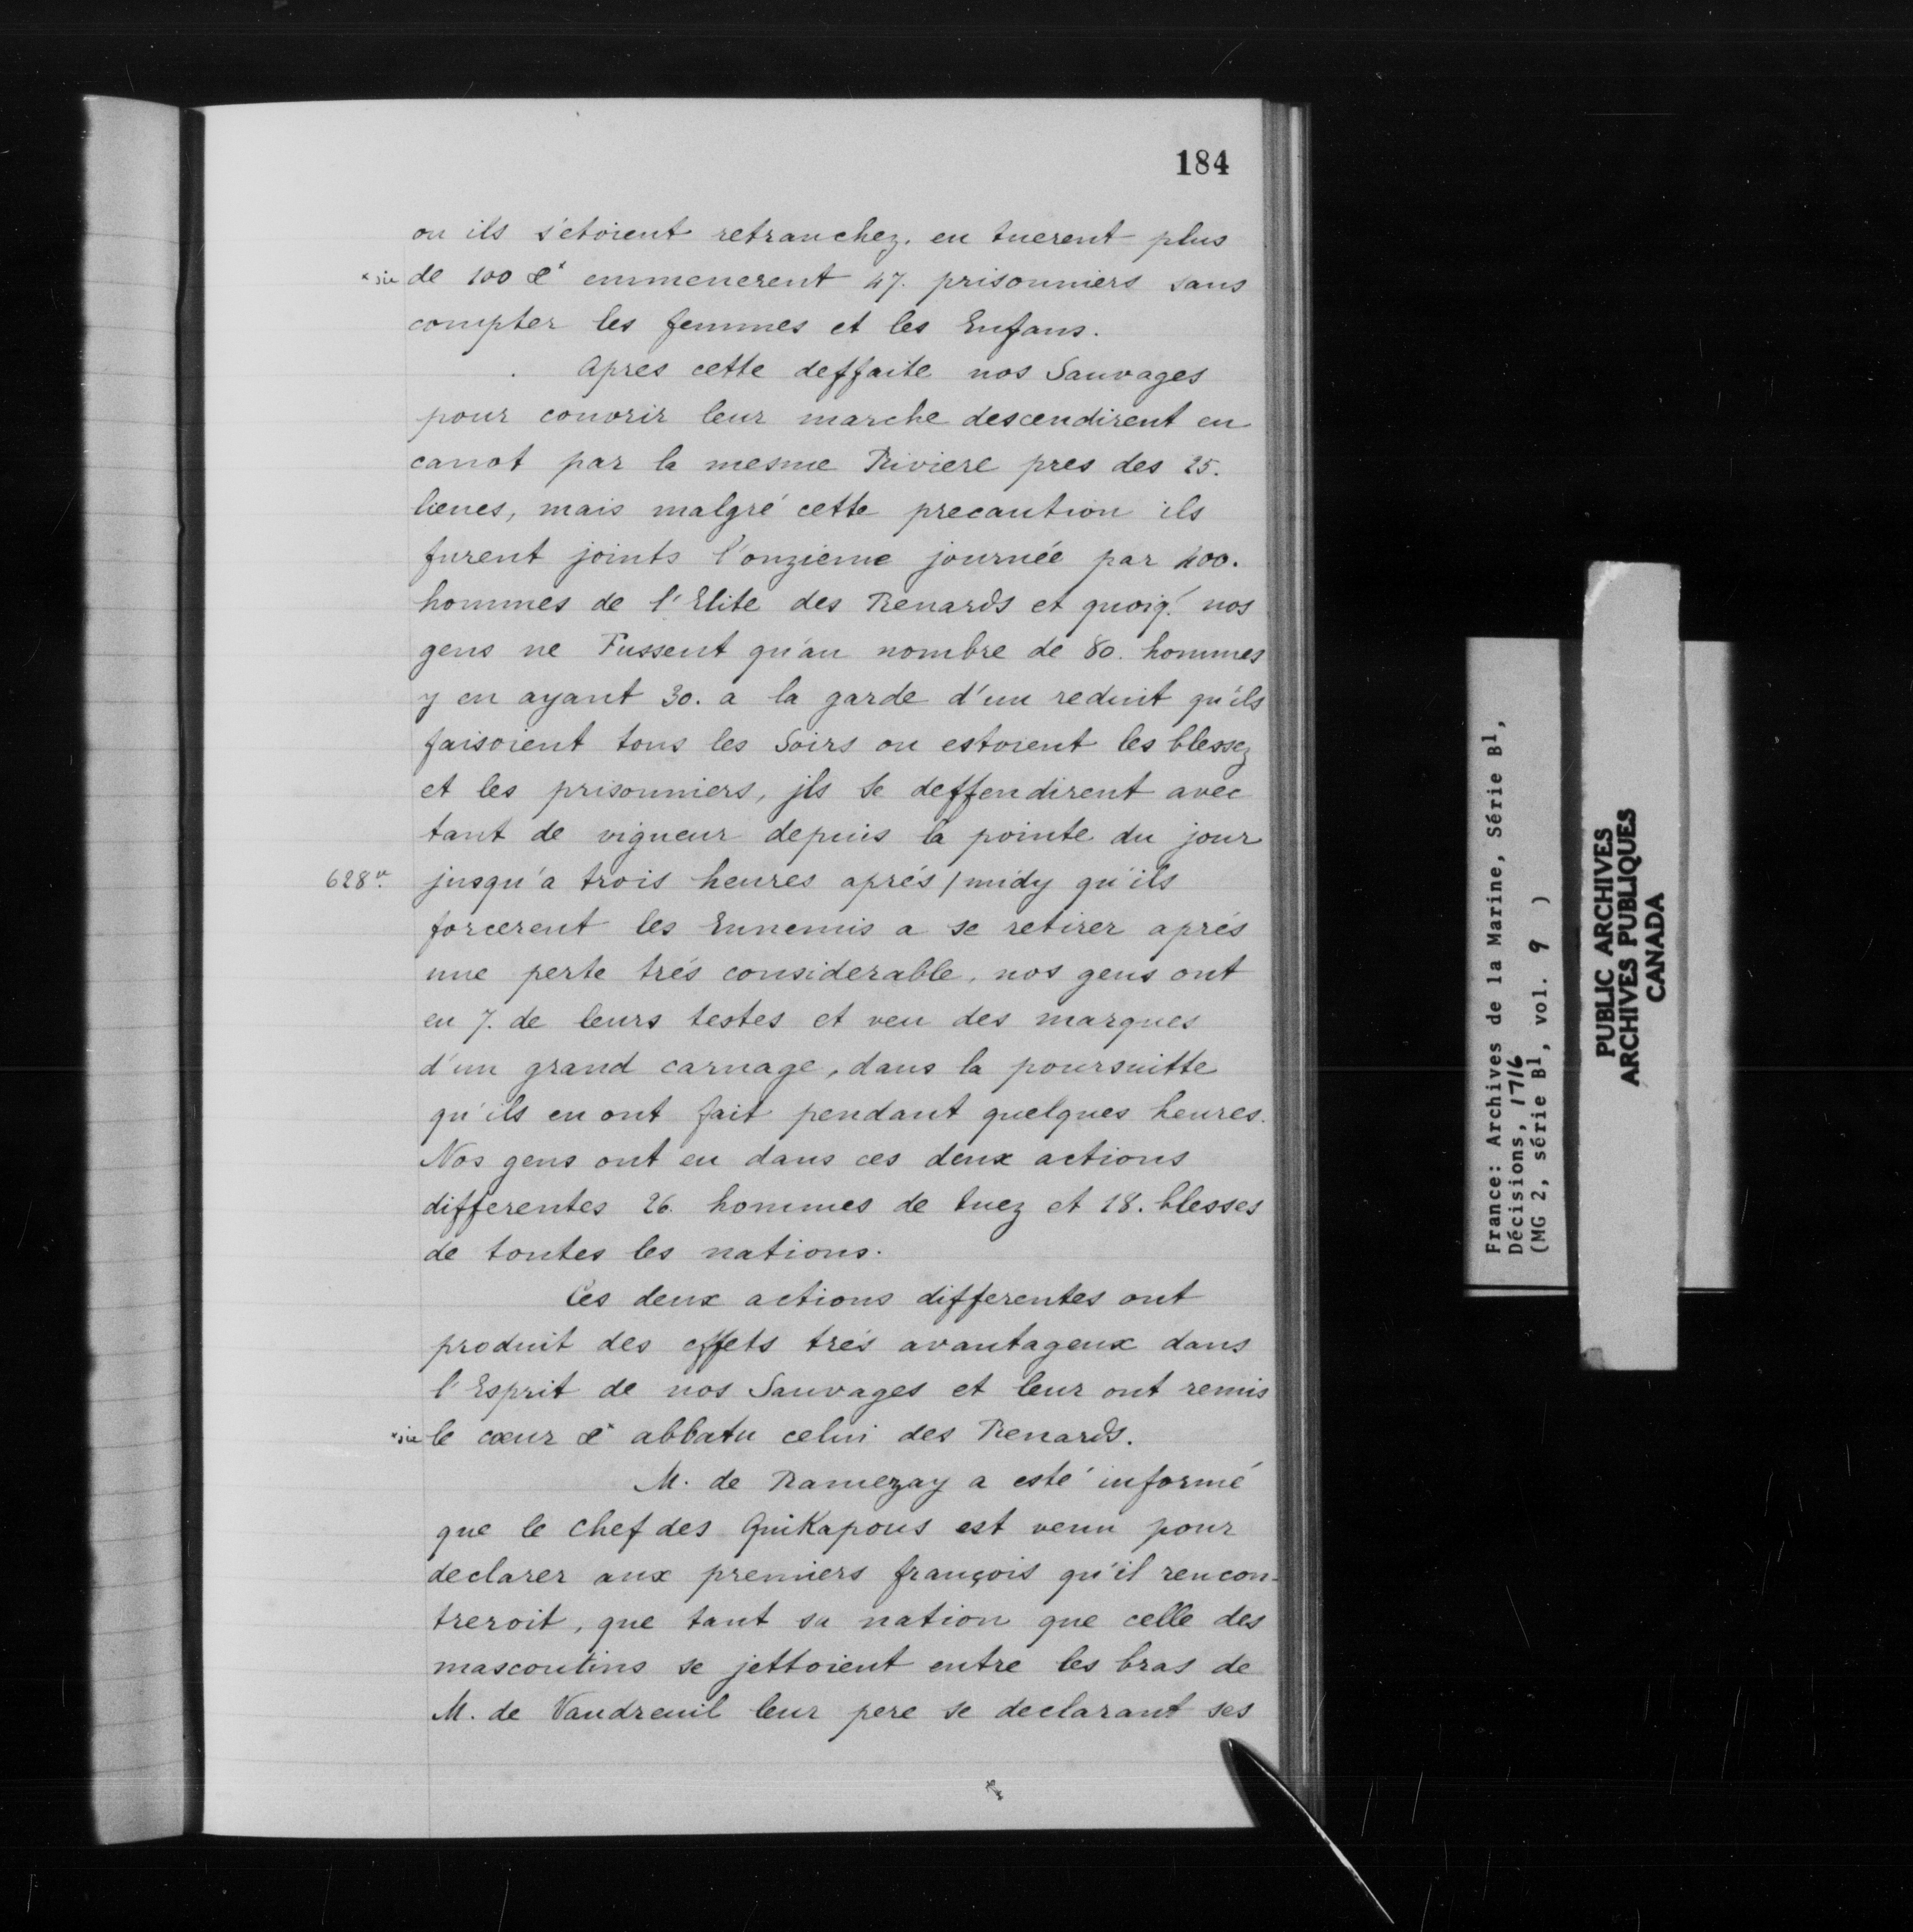 184
ou ils s'étoient retranchez, en tuerent plus
x sic de 100 &x emmenerent 47. prisonniers sans
compter les femmes et les Enfans.
Apres cette deffaite nos Sauvages
pour couvrir leur marche descendirent en
canot par la mesme Riviere pres des 25.
lieues, mais malgré cette precaution ils
furent joints l'onzieme journée par 400.
hommes de l'Elite des Renards et quoiq! nos
gens ne Fussent qu'au nombre de 80. hommes
y en ayant 30. a la garde d'un reduit qu'ils
faisoient tous les Soirs ou estoient les blessez
et les prisonniers, jls se deffendirent avec
tant de vigueur depuis la pointe du jour
628v. jusqu'a trois heures aprés / midy qu'ils
forcerent les Ennemis a se retirer aprés
une perte trés considerable, nos gens ont
eu 7. de leurs testes et veu des marques
d'un grand carnage, dans la poursuitte
qu'ils en ont fait pendant quelques heures.
Nos gens ont eu dans ces deux actions
differentes 26. hommes de tuez et 18. blesses
de toutes les nations.
Ces deux actions differentes ont
produit des effets trés avantageux dans
l'Esprit de nos Sauvages et leur ont remis
x sic le cœur &x abbatu celui des Renards.
M. de Ramezay a esté informé
que le chef des Quikapous est venu pour
declarer aux premiers françois qu'il rencon-
treroit, que tant sa nation que celle des
mascoutins se jettoient entre les bras de
M. de Vaudreuil leur pere se declarant ses
France: Archives de la Marine, Série B1,
Décisions, 1716
(MG 2, série B1, vol. 9 )
PUBLIC ARCHIVES
ARCHIVES PUBLIQUES
CANADA